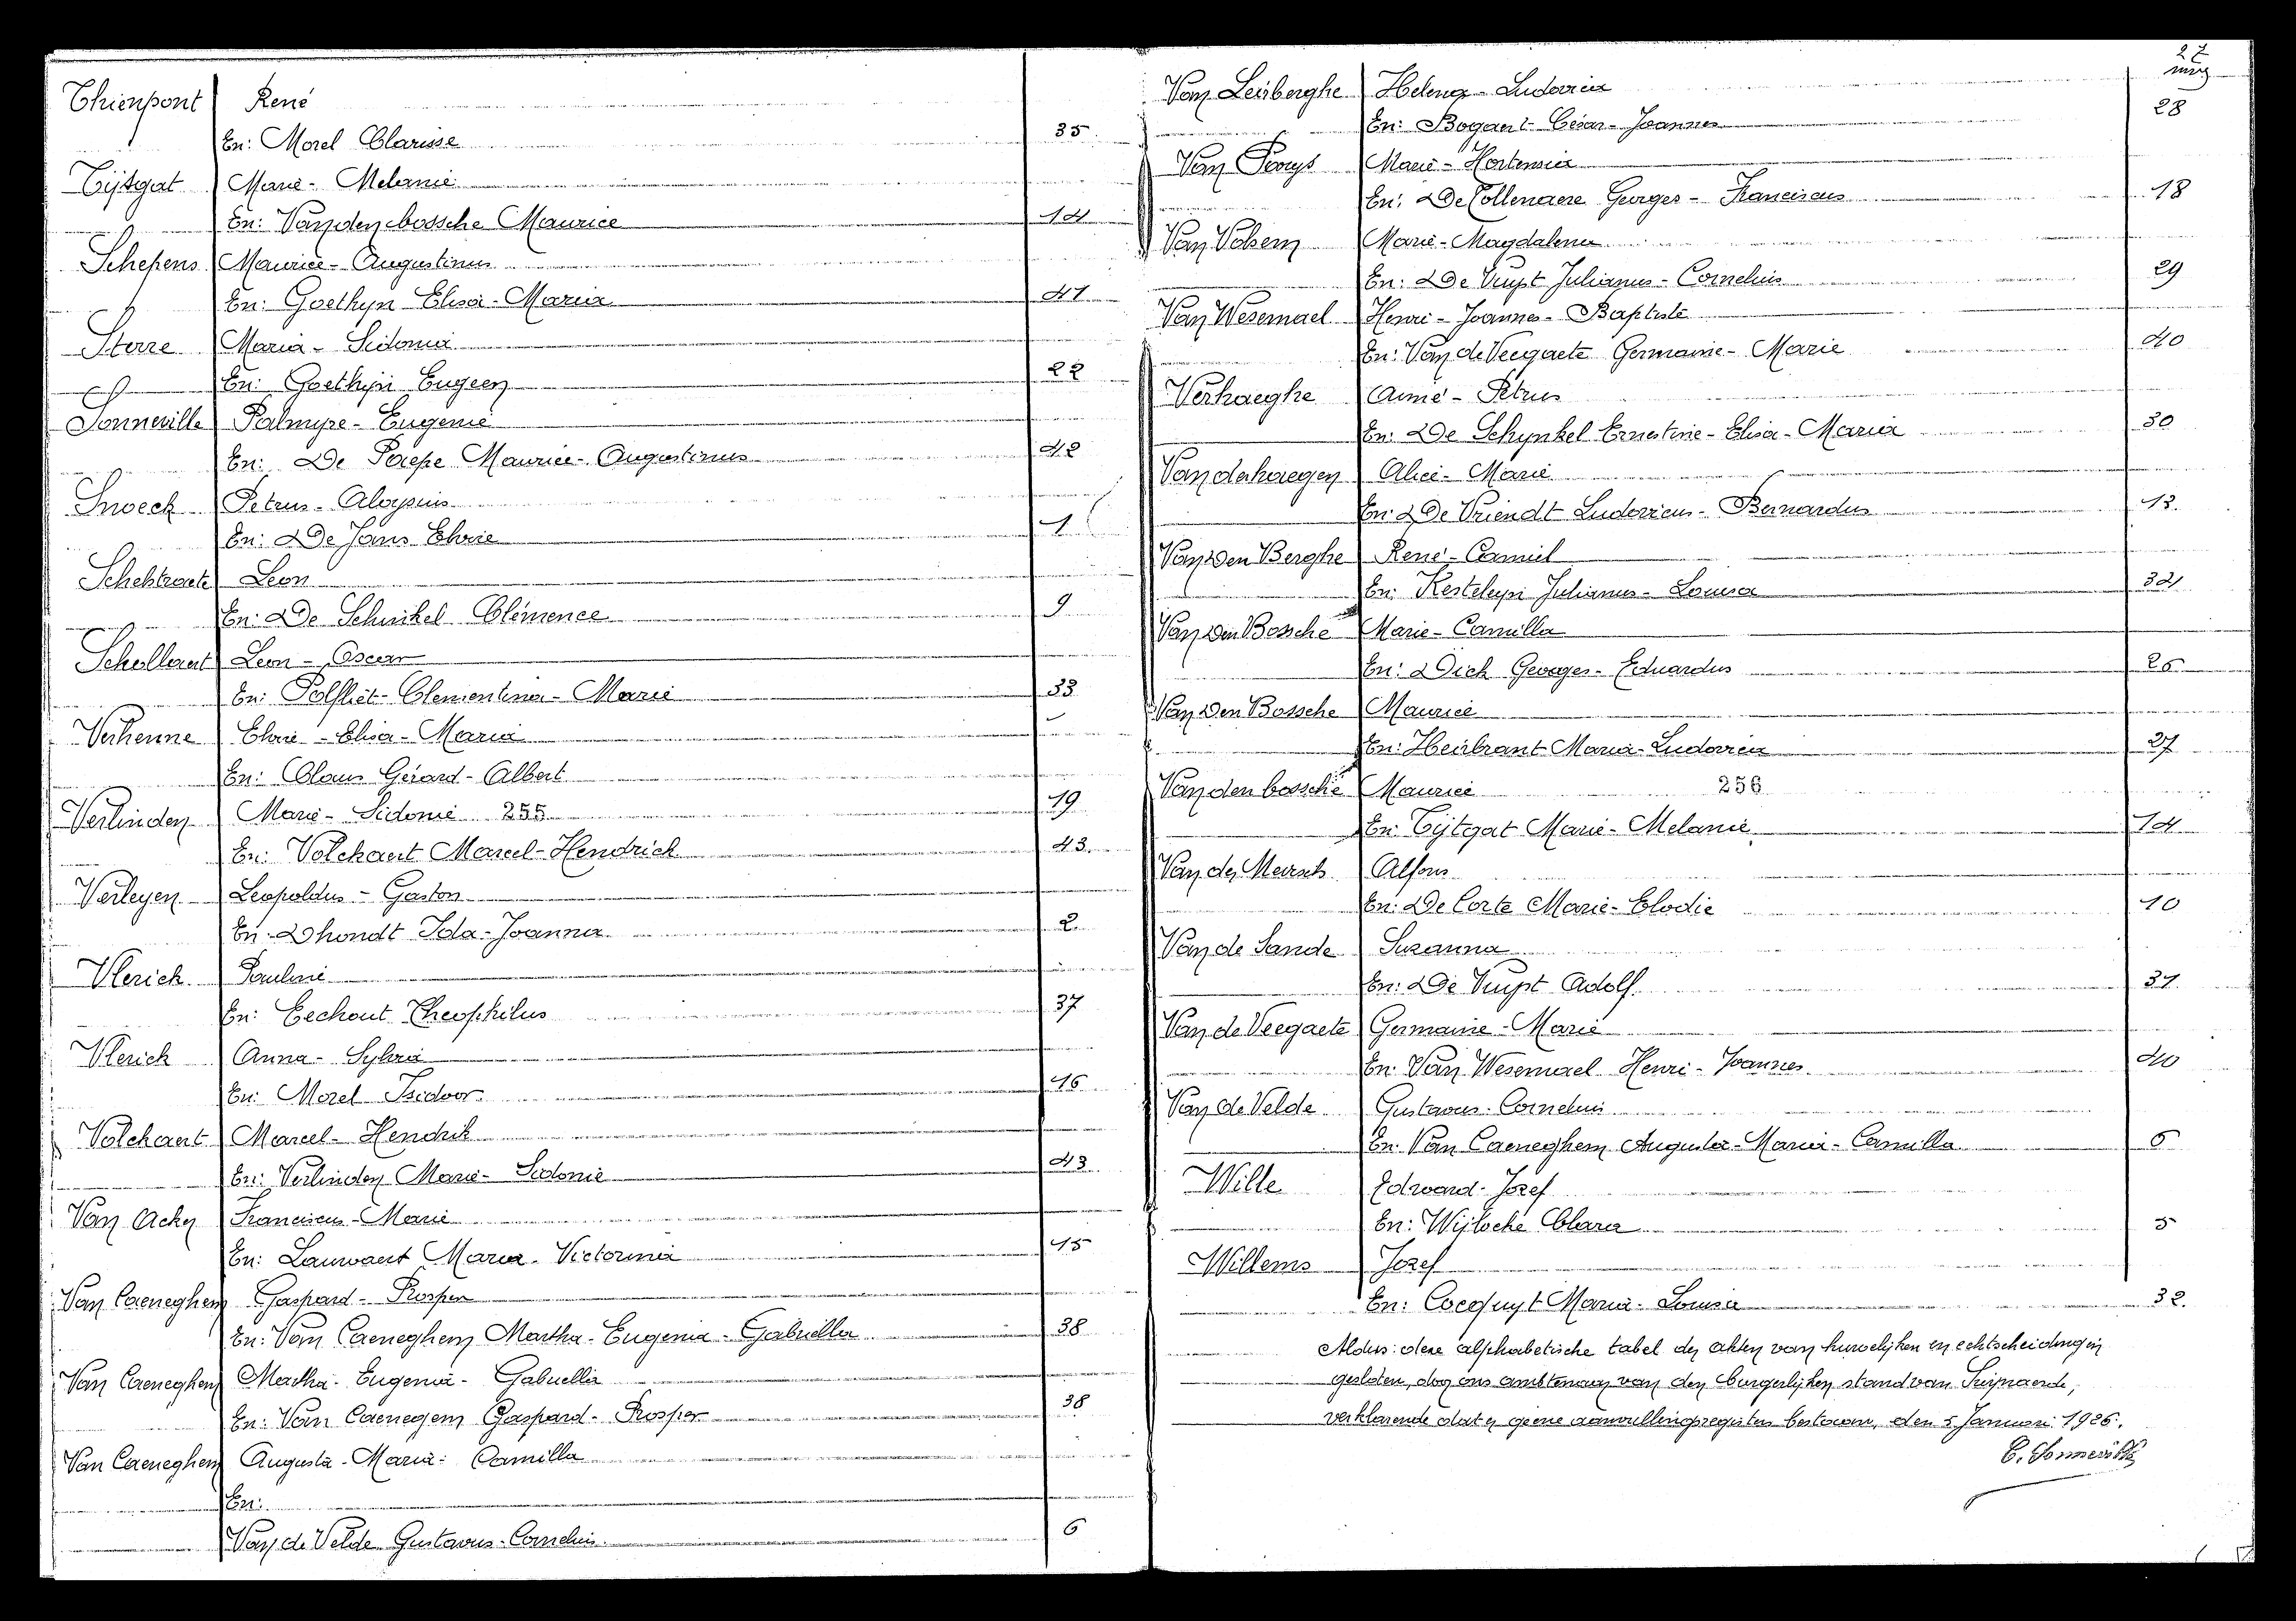 Thienpont René
En: Morel Clarisse 35
Tijtgat Marie - Melanie
En: Van den bossche Maurice 14
Schepens Maurice - Augustinus
En: Goethyn Elisa - Maria 41
Sterre Maria - Sidonia
En: Goethyn Eugeen 22
Sonneville Palmyre - Eugenie
En: De Paepe Maurice - Augustinus 42
Snoeck Petrus - Aloysius
En: De Jans Elvire 1
Leon
En: De Schinkel Clémence 9
Schollaert Leon - Oscar
En: Polfliet - Clementina - Marie 33
Verhenne Elvire - Elisa - Maria
En: Claus Gérard - Albert 19
Verlinden Marie - Sidonie 255
En: Volckaert Marcel - Hendrick 43
Verleyen Leopoldus - Gaston
En: Dhondt Ida - Joanna 2
Vlerick Pauline
En: Eechout Theophilus 37
Vlerick Anna - Sylvia
En: Morel Isidoor 16
Volckaert Marcel - Hendrik
En: Verlinden Marie - Sidonie 43
Van Acker Franciscus - Marie
En: Lauwaert Maria - Victorina 15
Van Caeneghem Gaspard - Prosper
En: Van Caeneghem Martha - Eugenia - Gabriella 38
Van Caeneghem Martha - Eugenia - Gabriella
En: Van Caenegem Gaspard - Prosper 38
Van Caeneghem Augusta - Maria - Camilla
En:
Van de Velde Gustavus - Cornelius 6
27
Van Leiberghe Helena - Ludovica
En: Bogaert César - Joannes 28
Van Parys Marie - Hortensia
En: De Collenaere Georges - Franciscus 18
Van Volsem Marie - Magdalena
En: De Vuyst Julianus - Cornelius 29
Van Wesemael Henri - Joannes - Baptiste
En: Van de Veegaete Germaine - Marie 40
Verhaeghe Aimé - Petrus
En: De Schynkel Ernestine - Elisa - Maria 30
Vanderhaegen Alice - Marie
En: De Vriendt Ludovicus - Bernardus 13
Van Den Berghe René - Camiel
En: Kesteleyn Julianus - Louisa 34
Van Den Bossche Marie - Camilla
En: Dick Georges - Eduardus 25
Van Den Bossche Maurice
En: Heirbrant Maria - Ludovica 27
Van den bossche Maurice 256
En: Tijtgat Marie - Melanie 14
Van der Meersch Alfons
En: De Corte Marie - Elodie 10
Van de Sande Suzanna
En: De Vuyst Adolf 31
Van de Veegaete Germaine - Marie
En: Van Wesemael Henri - Joannes 40
Van de Velde Gustavus - Cornelius
En: Van Caeneghem Augusta - Maria - Camilla 6
Wille Edward - Jozef
En: Wijlocke Clara 5
Willems Jozef
En: Cocquyt Maria - Louisa 32
Aldus deze alphabetische tabel der akten van huwelijken en echtscheidingen
gesloten, door ons ambtenaar van den burgerlijken stand van Suijnaerde,
verklarende dat er geene aanvullingsregisters bestaan, den 5 Januari 1926.
C. Sonneville